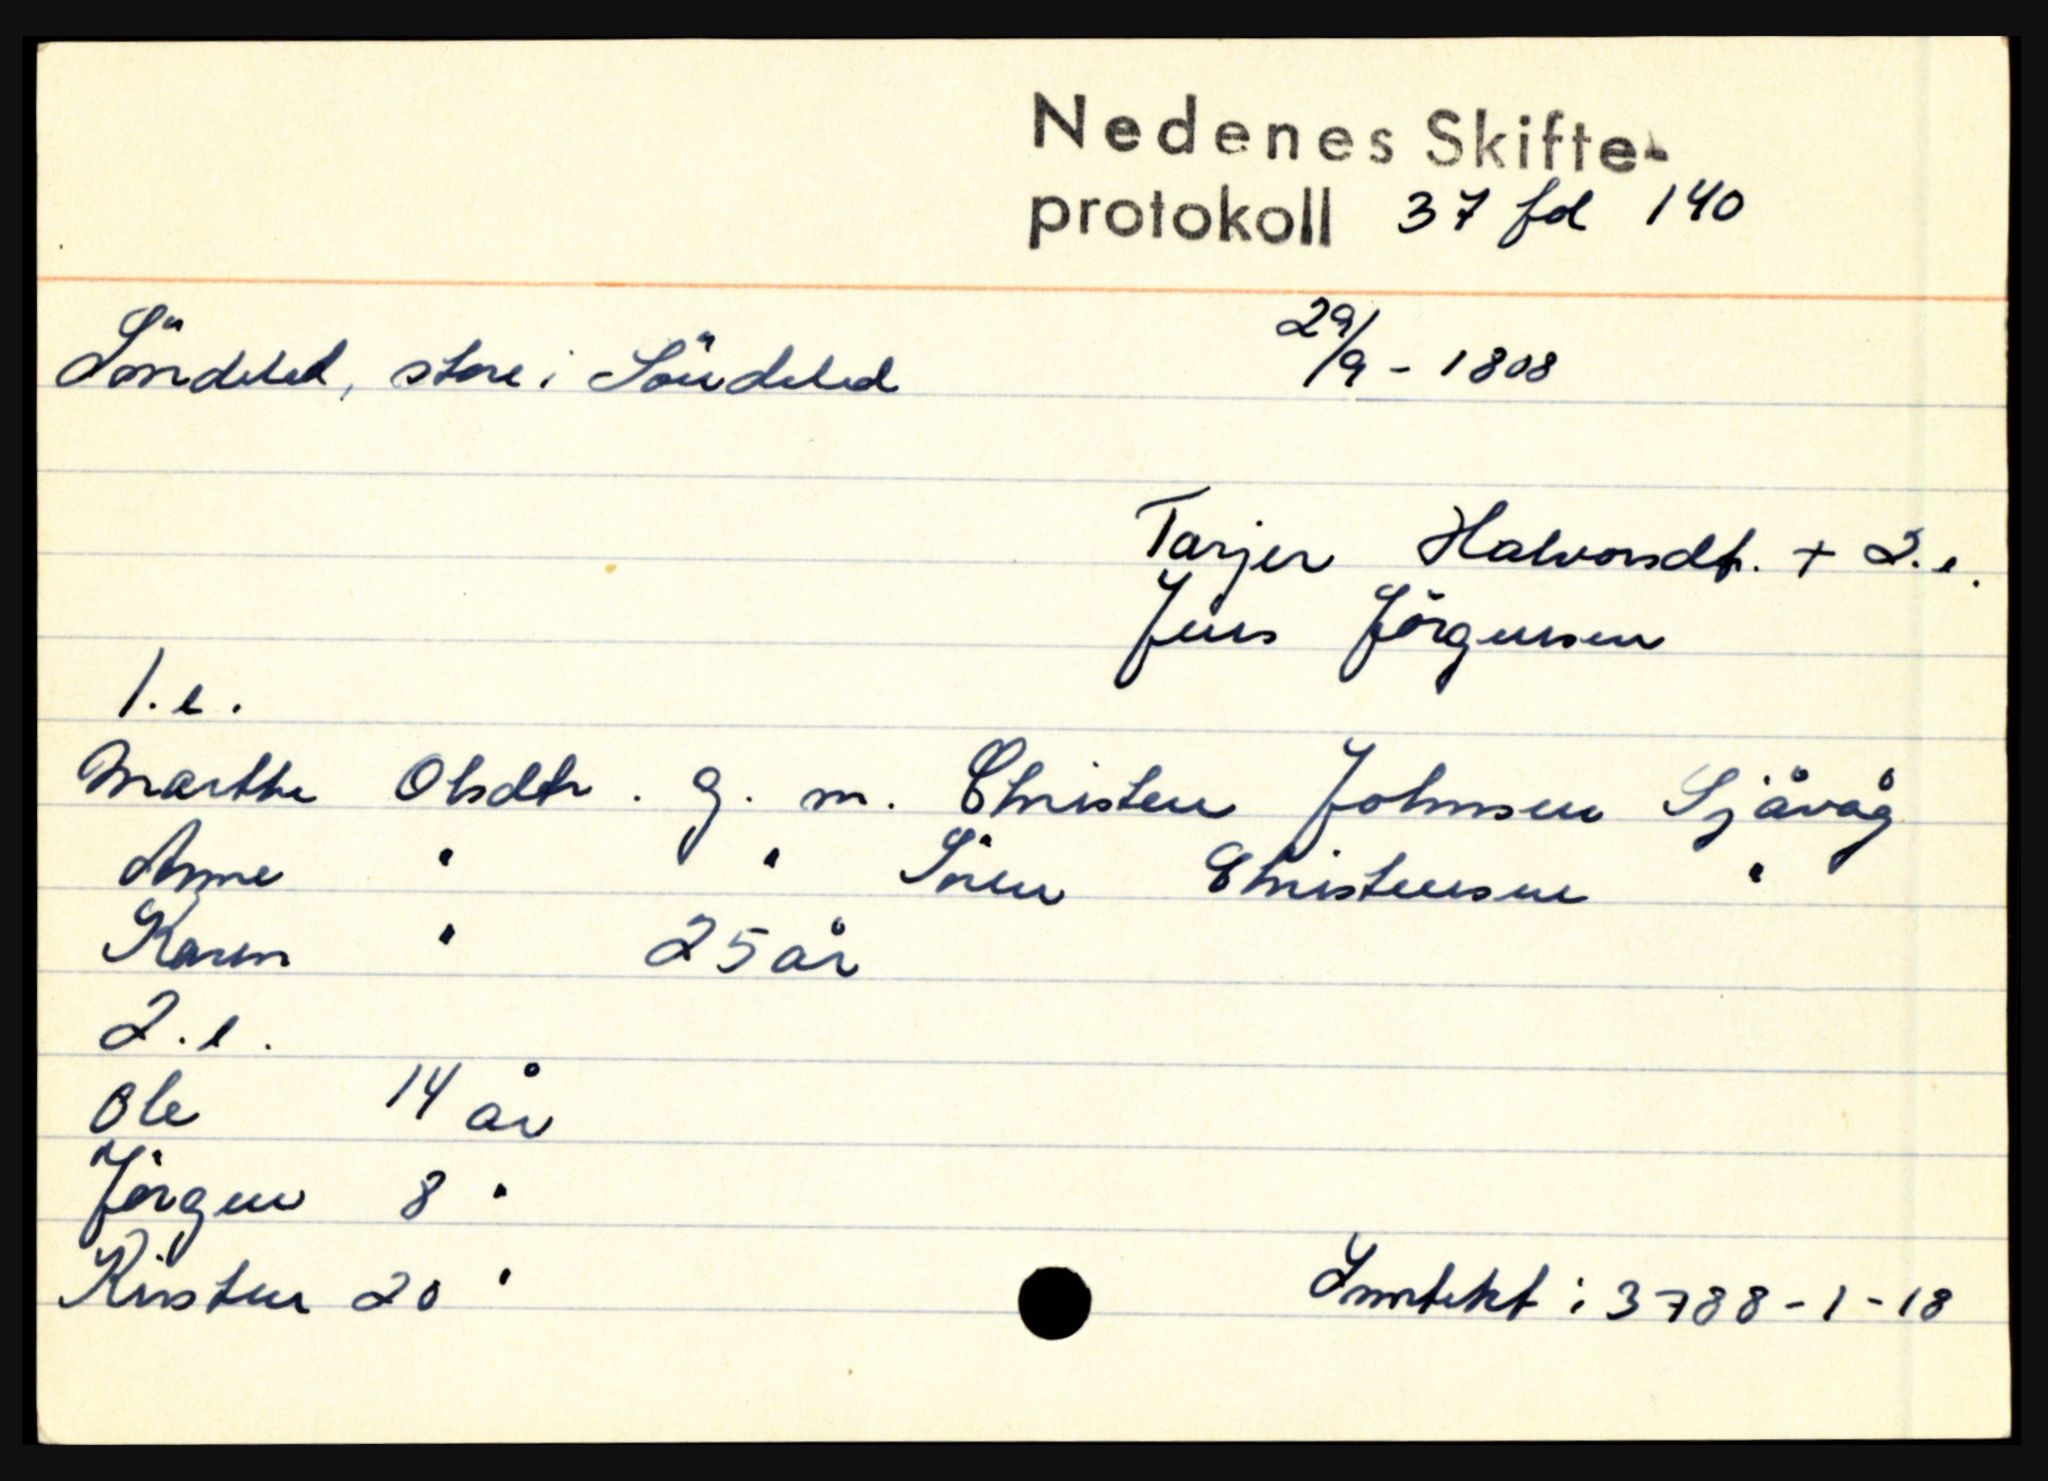 Nedenes Skifte-
protokoll 37 fol 140
Söndeled, store i Söndeled 29/9 - 1808
Tarjer Halvorsdt. + 2. e.
Jens Jörgensen
1. e.
Marthe Olsdtr. g. m. Christen Johnsen Sjåvåg
Anne " " Sören Christensen "
Karen " 25 år
2. e.
Ole 14 år
Jörgen 8 "
Kirsten 20 " Inntekt: 3788-1-18